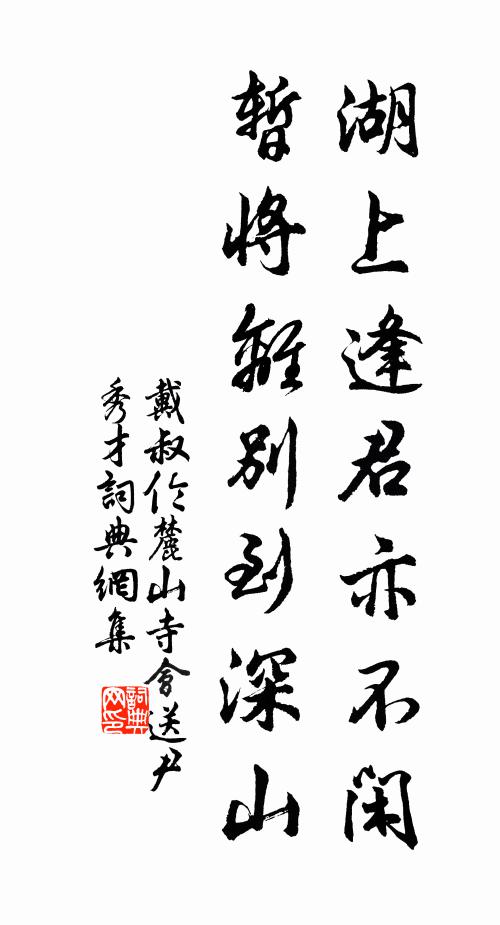 湖上逢君亦不閑
暫將離別到深山
戴叔伦麓山寺會送尹
秀才詞典網集
詞典网印